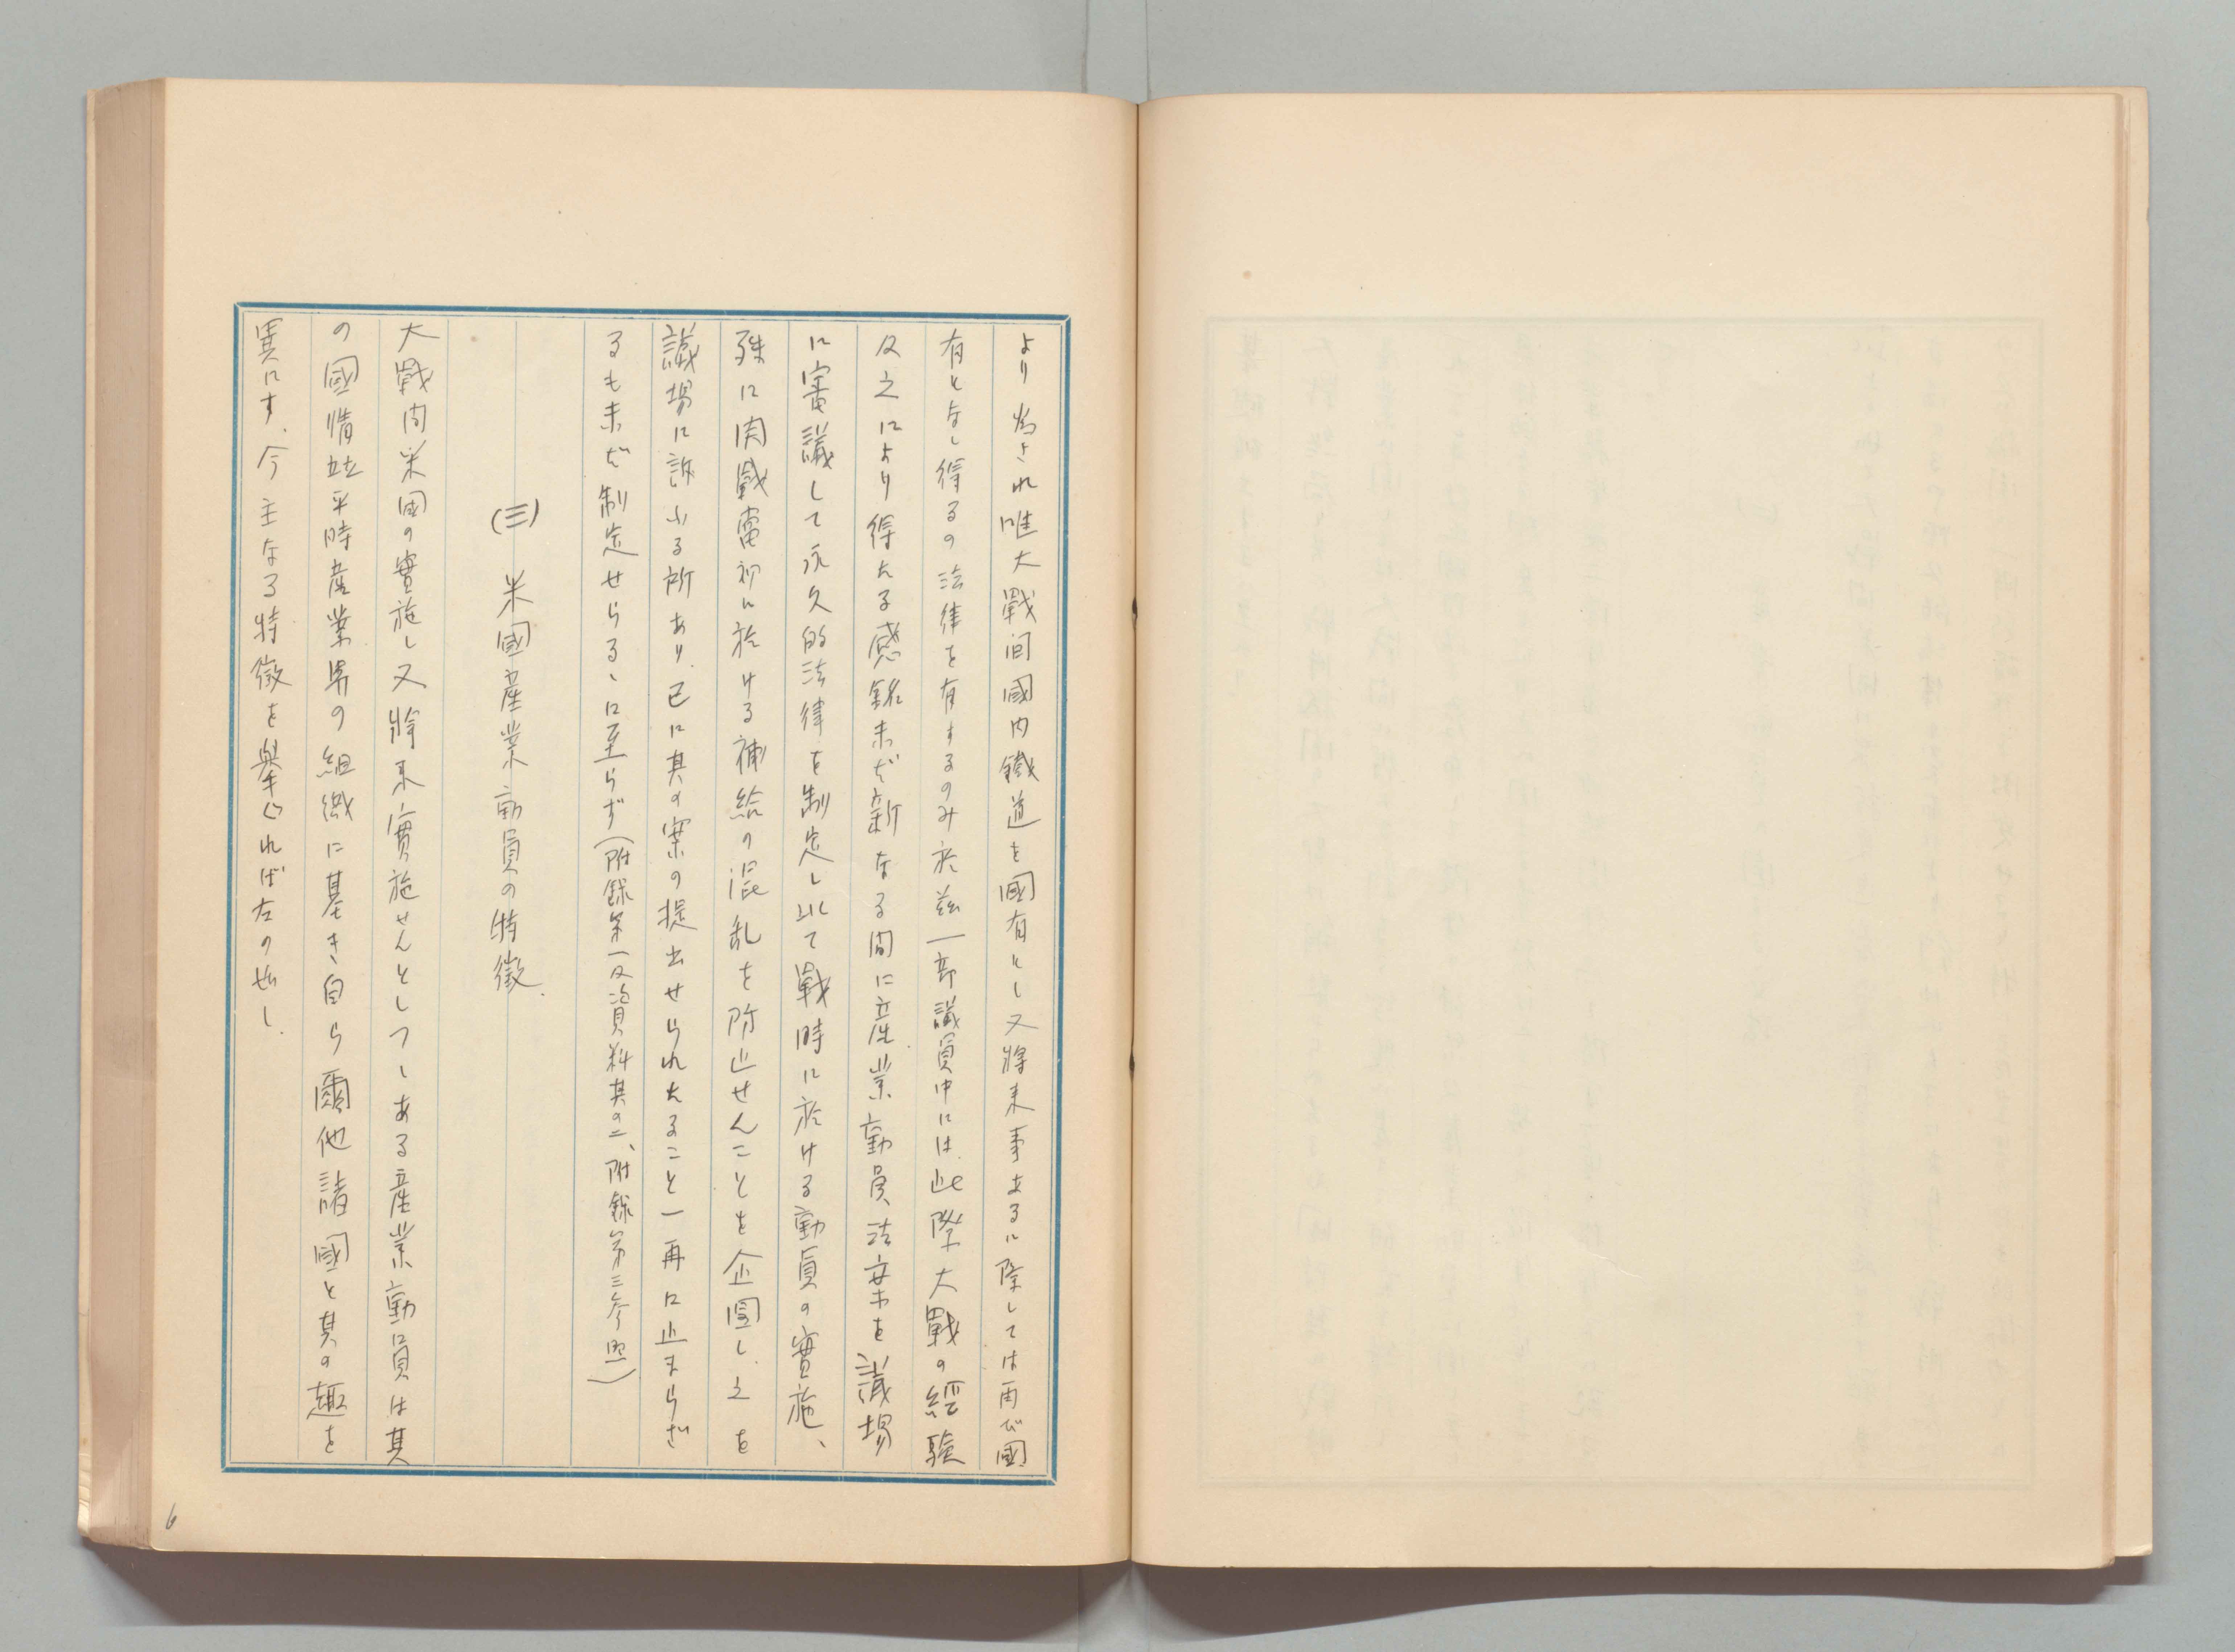 より為され唯大戰间國内鐵道を國有とし又將来事あるに際しては再び國
有となし得るの法律を有するのみ於茲一部議員中には此際大戰の経驗
及之により得たる感銘未だ新なる間に産業動員法案を議場
に審議して永久的法律を制定し以て戰時に於ける動員の實施、
殊に開戰當初に於ける補給の混乱を防止せんことを企圖し之を
議場に訴ふる所あり、已に其の案の提出せられたること一再に止まらざ
るも未だ制定せらるゝに至らず(附録第一及資料其の二、附録第三参照)
(三) 米國産業動員の特徴
大戰间米國の實施し又將来實施せんとしつゝある産業動員は其
の國情竝平時産業界の組織に基き自ら爾他諸國と其の趣を
異にす、今主なる特徴を擧ぐれば左の如し
6